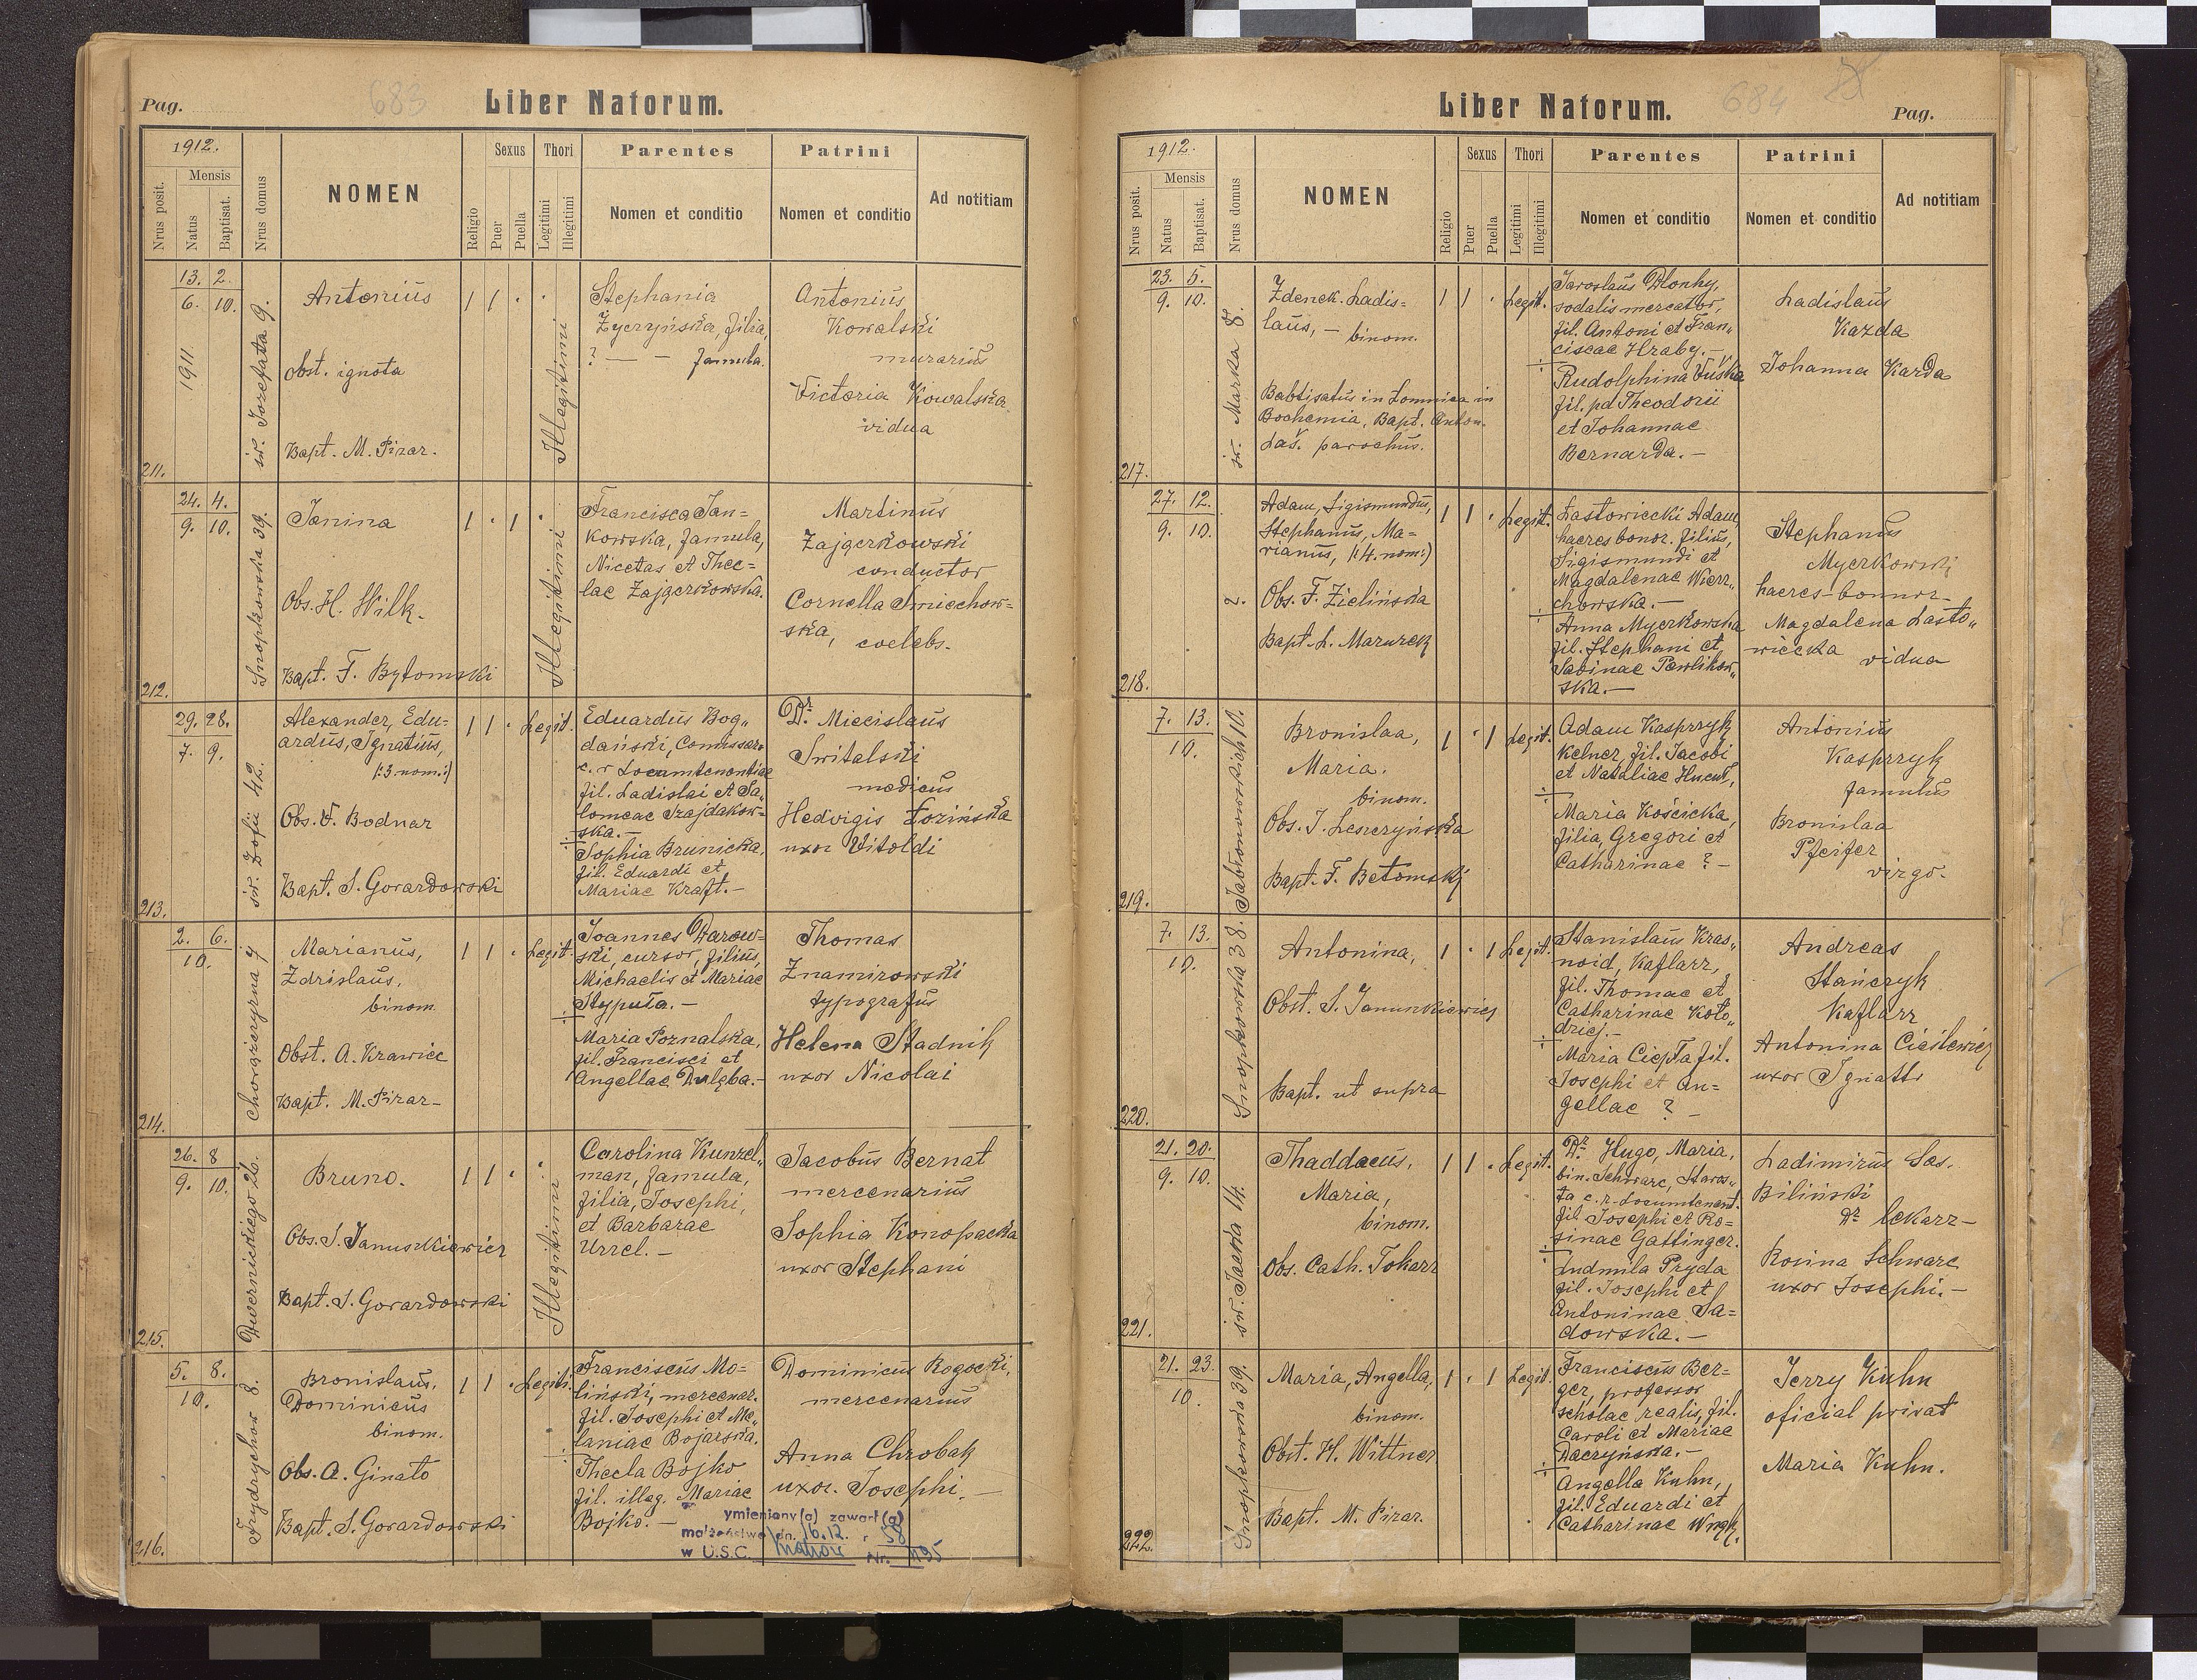 Pag.
683
Liber Natorum.
1912.
Nrus posit.
Mensis
Natus
Baptisat.
Nrus domus
NOMEN
Religio
Sexus
Puer
Puella
Thori
Legitimi
Illegitimi
Parentes
Nomen et conditio
Patrini
Nomen et conditio
Ad notitiam
211.
13. 2.
6. 10.
1911.
św. Jozefata 9.
Antonius
Obst. ignota
Bapt. M. Pizar.
1 1 · ·
Illegitimi
Stephania
Życzyńska, filia,
? — — famula.
Antonius
Kowalski
murarius
Victoria Kowalska
vidua
212.
24. 4.
9. 10.
Snopkowska 39.
Janina
Obs. H. Wilk.
Bapt. F. Bytomski
1 · 1 ·
Illegitimi
Francisca Jan=
kowska, famula,
Nicetas et Thec=
lae Zajączkowska.
Martinus
Zajączkowski
conductor
Cornella Smiechow=
ska, coelebs.
213.
29. 28.
7. 9.
św. Zofii 42.
Alexander, Edu-
ardus, Ignatius,
(:3 nom:)
Obs. F. Bodnar
Bapt. S. Gorardowski
1 1 · Legit.
Eduardus Bog„
dański, Comissar.
c. r Locumtenentiae
fil. Ladislai et Sa„
lomeae Szajdakow=
ska.—
÷
Sophia Brunicka,
fil. Eduardi et
Mariae Kraft.—
Dr. Miecislaus
Switalski
medicus
Hedvigis Łozińska
uxor Vitoldi
214.
2. 6.
10.
Chorąszczyzna 7
Marianus,
Zdzislaus,
binom.
Obst. A. Krawiec
Bapt. M. Pizar—
1 1 · Legit.
Joannes Darow=
ski, cursor, filius,
Michaelis et Mariae
Stypuła.—
÷
Maria Poznalska,
fil. Francisci et
Angellae Dulęba.—
Thomas
Znamirowski
typografus
Helena Stadnik
uxor Nicolai
215.
26. 8
9. 10.
Dwernickiego 26.
Bruno.
Obs. S. Januszkiewicz
Bapt. S. Gorardowski
1 1 · ·
Illegitimi
Carolina Kunzel„
man, famula,
filia, Josephi,
et Barbarae
Urzel.—
Jacobus Bernat
mercenarius
Sophia Konopacka
uxor Stephani
216.
5. 8.
10.
Frydrychow 8.
Bronislaus,
Dominicus
binom.
Obs. A. Ginato
Bapt. S. Gorardowski
1 1 · Legiti.
Franciscus Mo=
liński, mercenar.
fil. Josephi et Me„
laniae Bojarska.
÷
Thecla Bojko
fil. illeg. Mariae
Bojko.—
Dominicus Rogocki,
mercenarius
Anna Chrobak
uxor. Josephi.—
ymieniony(a) zawarł(a)
małżeństwo dn. 16.12. r 58
w U.S.C. Nr. 1195
Liber Natorum.
684
Pag.
1912.
Nrus posit.
Mensis
Natus
Baptisat.
Nrus domus
NOMEN
Religio
Sexus
Puer
Puella
Thori
Legitimi
Illegitimi
Parentes
Nomen et conditio
Patrini
Nomen et conditio
Ad notitiam
217.
23. 5.
9. 10.
św. Marka 8.
Zdenek. Ladis=
laus, — binom.
Babtisatus in Lomnica in
Bochemia, Bapt. Anton.
Laš. parochus.
1 1 · Legit.
Jaroslaus Dlonhy,
sodalis mercator,
fil. Antoni et Fran„
ciscae Hraby.—
÷
Rudolphina Vuska
fil. pd Theodorii
et Johannae
Bernarda.—
Ladislaus
Kazda
Johanna Karda
218.
27. 12.
9. 10.
2.
Adam, Sigismundus,
Stephanus, Ma=
rianus, (:4. nom:)
Obs. F. Zielińska
Bapt. L. Mazurek
1 1 · Legit.
Łastowiecki Adam,
haeres bonor. filius,
Sigismundi et
Magdalenae Wierz„
chowska.—
÷
Anna Myczkowska
fil. Stephani et
Sabinae Pawlikow„
ska.—
Stephanus
Myczkowski
haeres-bonnor-
Magdalena Łasto„
wiecka vidua
219.
7. 13.
10.
Jabłonowskich 10.
Bronislaa,
Maria.
binom.
Obs. J. Leszczyńska
Bapt. F. Betomskj
1 · 1 Legit.
Adam Kasprzyk
Kelner, fil. Jacobi
et Nataliae Hucuł,
÷
Maria Kościcka,
filia, Gregori et
Catharinae ? —
Antonius
Kasprzyk
famulus
Bronislaa
Pfeifer
virgo.
220.
7. 13.
10.
Snopkowska 38.
Antonina,
Obst. S. Januszkiewicz
Bapt. ut supra
1 · 1 Legit.
Stanislaus Kras„
noid, Kaflarz,
fil. Thomae et
Catharinae Koło„
dziej.—
÷
Maria Ciepła fil.
Josephi et An=
gellae ? —
Andreas
Stańczyk
Kaflarz
Antonina Cieślewicz
uxor Ignatii
221.
21. 20.
9. 10.
św. Jacka 14.
Thaddaeus,
Maria,
binom.
Obs. Cath. Tokarz
1 1 · Legit.
Dr. Hugo, Maria,
bin. Schwarc, Staros„
ta c. r. Locumtenent.
fil. Josephi et Ro=
sinae Gattinger.
÷
Ludmila Pryda
fil. Josephi et
Antoninae Sa=
dowska.—
Ladimirus Sas.
Biliński
Dr. lekarz—
Rosina Schwarc
uxor Josephi.—
222.
21. 23.
10.
Snopkowska 39.
Maria, Angella,
binom.
Obst. H. Wittner
Bapt. M. Pizar.
1 · 1 Legit.
Franciscus Ber=
ger, professor
scholae realis, fil.
Caroli et Mariae
Daczyńska.—
÷
Angella Kuhn,
fil. Eduardi et
Catharinae
Jerry Kuhn
oficial privat
Maria Kuhn.